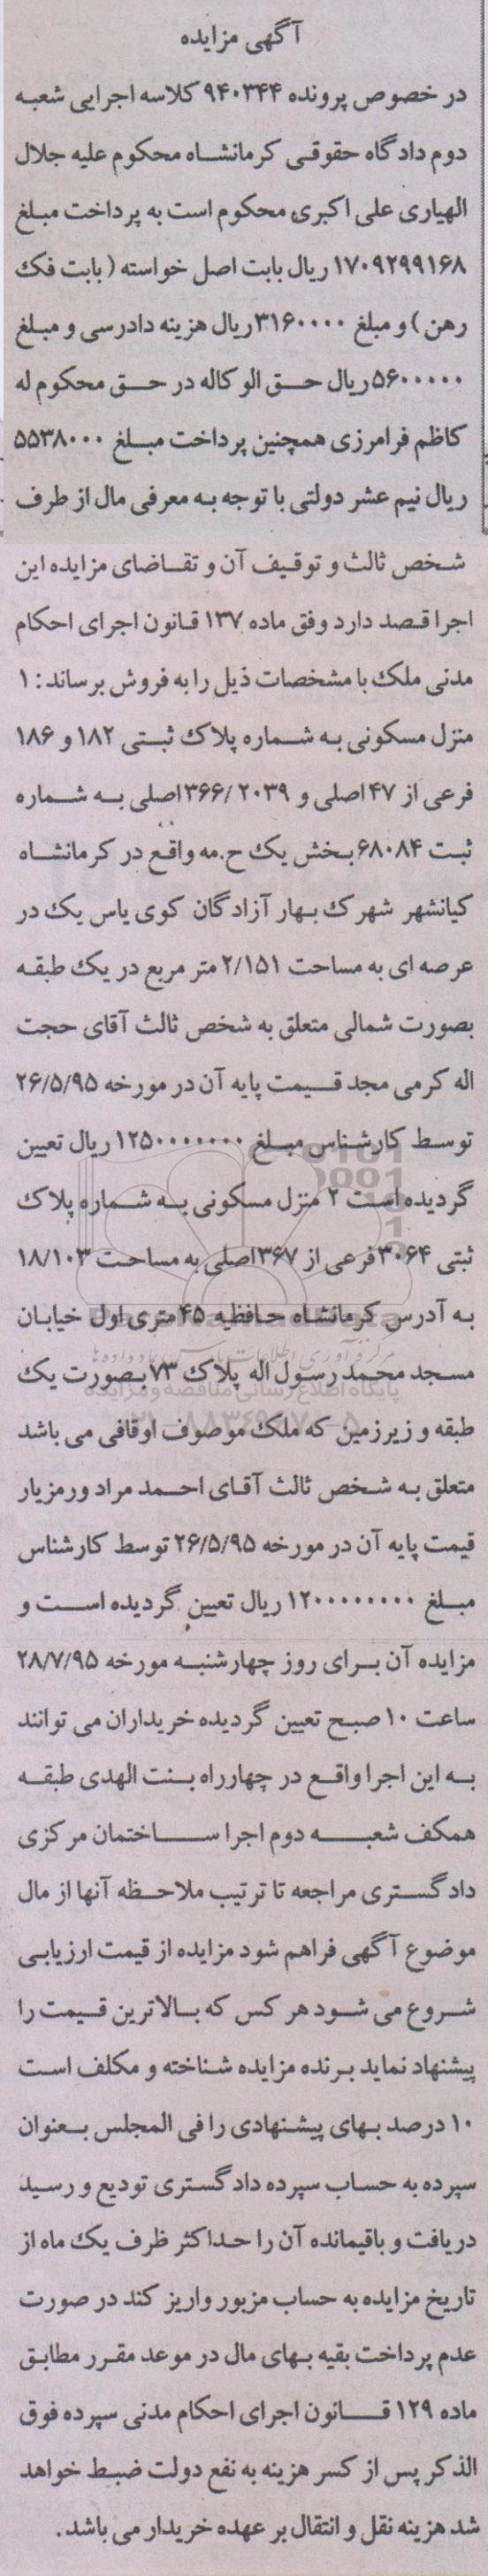 آگهی مزایده
در خصوص پرونده ۹۴۰۳۴۴ کلاسه اجرایی شعبه
دوم دادگاه حقوقی کرمانشاه محکوم علیه جلال
الهیاری علی اکبری محکوم است به پرداخت مبلغ
۱۷۰۹۲۹۹۱۶۸ ریال بابت اصل خواسته ( بابت فک
رهن ) و مبلغ ۳۱۶۰۰۰۰ ریال هزینه دادرسی و مبلغ
۵۶۰۰۰۰۰ ریال حق الوکاله در حق محکوم له
کاظم فرامرزی همچنین پرداخت مبلغ ۵۵۳۸۰۰۰
ریال نیم عشر دولتی با توجه به معرفی مال از طرف
شخص ثالث و توقیف آن و تقاضای مزایده این
اجرا قصد دارد وفق ماده ۱۳۷ قانون اجرای احکام
مدنی ملک با مشخصات ذیل را به فروش برساند : ۱
منزل مسکونی به شماره پلاک ثبتی ۱۸۲ و ۱۸۶
فرعی از ۴۷ اصلی و ۲۰۳۹ /۳۶۶ اصلی به شماره
ثبت ۶۸۰۸۴ بخش یک ح.مه واقع در کرمانشاه
کیانشهر شهرک بهار آزادگان کوی یاس یک در
عرصه ای به مساحت ۲/۱۵۱ متر مربع در یک طبقه
بصورت شمالی متعلق به شخص ثالث آقای حجت
اله کرمی مجد قیمت پایه آن در مورخه ۲۶/۵/۹۵
توسط کارشناس مبلغ ۱۲۵۰۰۰۰۰۰۰ ریال تعیین
گردیده است ۲ منزل مسکونی به شماره پلاک
ثبتی ۳۰۶۴ فرعی از ۳۶۷ اصلی به مساحت ۱۸/۱۰۳
به آدرس کرمانشاه حافظیه ۴۵ متری اول خیابان
مسجد محمد رسول اله پلاک ۷۳ بصورت یک
طبقه و زیرزمین که ملک موصوف اوقافی می باشد
متعلق به شخص ثالث آقای احمد مراد ورمزیار
قیمت پایه آن در مورخه ۲۶/۵/۹۵ توسط کارشناس
مبلغ ۱۲۰۰۰۰۰۰۰۰ ریال تعیین گردیده است و
مزایده آن برای روز چهارشنبه مورخه ۲۸/۷/۹۵
ساعت ۱۰ صبح تعیین گردیده خریداران می توانند
به این اجرا واقع در چهارراه بنت الهدی طبقه
همکف شعبه دوم اجرا ساختمان مرکزی
دادگستری مراجعه تا ترتیب ملاحظه آنها از مال
موضوع آگهی فراهم شود مزایده از قیمت ارزیابی
شروع می شود هر کس که بالاترین قیمت را
پیشنهاد نماید برنده مزایده شناخته و مکلف است
۱۰ درصد بهای پیشنهادی را فی المجلس بعنوان
سپرده به حساب سپرده دادگستری تودیع و رسید
دریافت و باقیمانده آن را حداکثر ظرف یک ماه از
تاریخ مزایده به حساب مزبور واریز کند در صورت
عدم پرداخت بقیه بهای مال در موعد مقرر مطابق
ماده ۱۲۹ قانون اجرای احکام مدنی سپرده فوق
الذکر پس از کسر هزینه به نفع دولت ضبط خواهد
شد هزینه نقل و انتقال بر عهده خریدار می باشد .